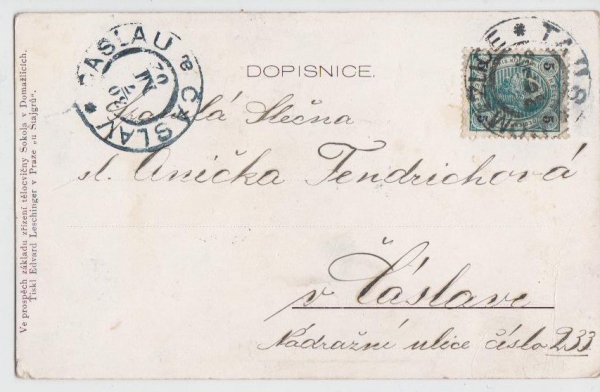 DOPISNICE.
ČASLAU * ČÁSLAV
TAUS
5 5
Slečna
sl. Anička Jendrichová
v Čáslavi
Nádražní ulice číslo 233
Ve prospěch základu zřízení tělocvičny Sokola v Domažlicích.
Tiskl Edvard Leschinger v Praze „u Štajgrů".